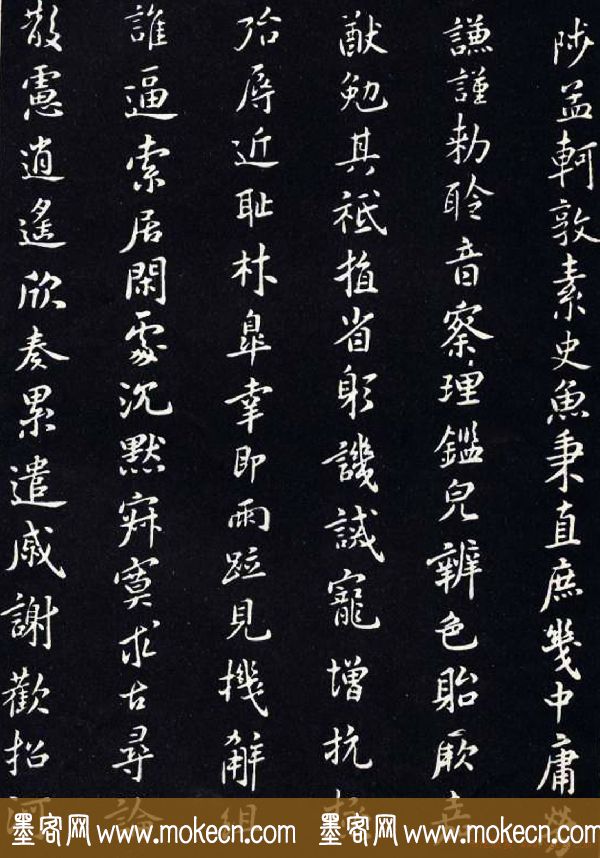 陟孟軻敦素史魚秉直庶幾中庸勞
謙謹勅聆音察理鑑皃辨色貽厥嘉
猷勉其祗植省躬譏誡寵增抗極
殆辱近耻林皋幸即兩疏見機解組
誰逼索居閑處沉默寂寞求古尋論
散慮逍遙欣奏累遣慼謝歡招
墨客网 www.mokecn.com 墨客网 www.mokecn.com